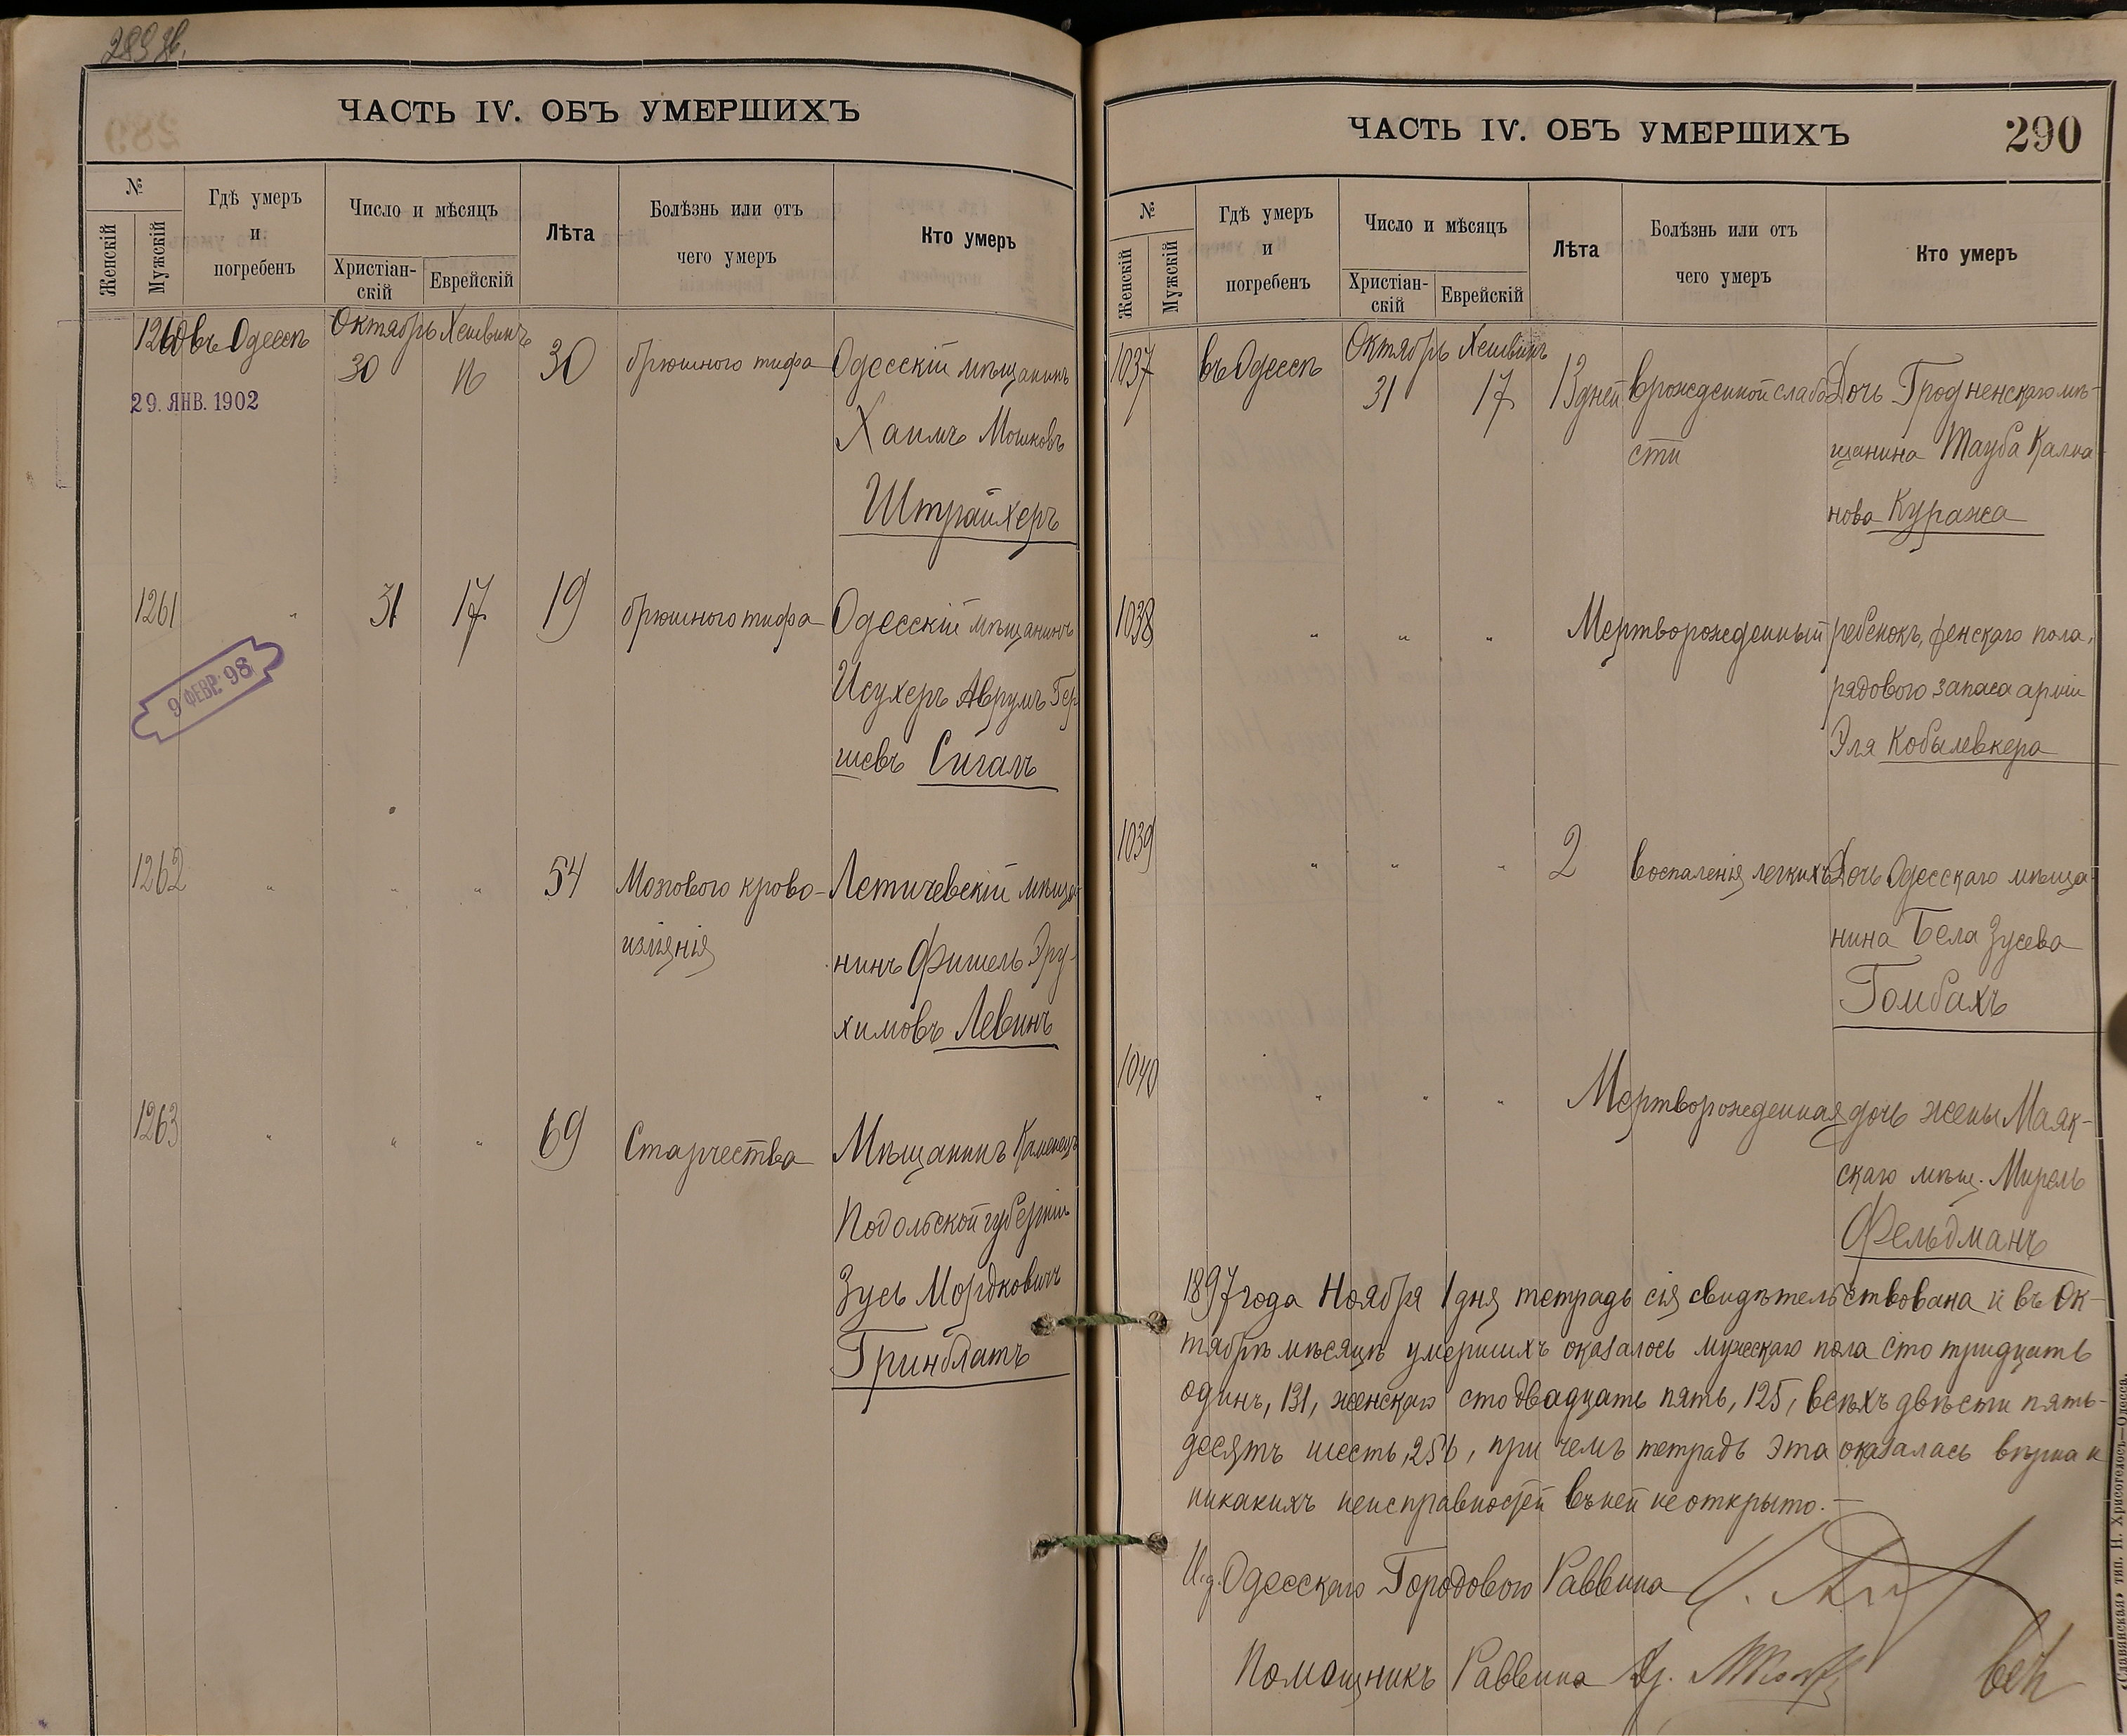 ЧАСТЬ IV. ОБЪ УМЕРШИХЪ
№
Женскій
Мужскій
Гдѣ умеръ
и
погребенъ
Число и мѣсяцъ
Христіан-
скій
Еврейскій
Лѣта
Болѣзнь или отъ
чего умеръ
Кто умеръ
1260 въ Одессѣ Октябрь Хешвинъ
30 16 30 брюшного тифа Одесскій мѣщанинъ
29. ЯНВ. 1902
Хаимъ Мошковъ
Штрайхеръ
1261 " 31 17 19 брюшного тифа Одесскій мѣщанинъ
9 ФЕВР. 98
Исухеръ Аврумъ Гер
шевъ Сигалъ
1262 " " " 54 Мозгового крово- Летичевскій мѣща
изліянія нинъ Фишель Эру-
химовъ Левинъ
1263 " " " 69 Старчества Мѣщанинъ Каменецъ
Подольской губерніи
Зусь Мордковичъ
Гринблатъ
ЧАСТЬ IV. ОБЪ УМЕРШИХЪ
290
№
Женскій
Мужскій
Гдѣ умеръ
и
погребенъ
Число и мѣсяцъ
Христіан-
скій
Еврейскій
Лѣта
Болѣзнь или отъ
чего умеръ
Кто умеръ
1037 въ Одессѣ Октябрь Хешвинъ
31 17 13 дней врожденной слабо Дочь Гродненскаго мѣ-
сти щанина Тауба Калма-
нова Куража
1038 " " " Мертворожденный ребенокъ, женскаго пола,
рядового запаса арміи
Эля Кобылевкера
1039 " " " 2 воспаленія легкихъ Дочь Одесскаго мѣща-
нина Бела Зусева
Гомбахъ
1040 " " " Мертворожденная дочь жены Маяк-
скаго мѣщ. Мирель
Фельдманъ
1897 года Ноября 1 дня тетрадь сія свидѣтельствована и въ Ок-
тябрѣ мѣсяцѣ умершихъ оказалось мужескаго пола сто тридцать
одинъ, 131, женскаго сто двадцать пять, 125, всѣхъ двѣсти пять-
десятъ шесть, 256, при чемъ тетрадь эта оказалась вѣрна и
никакихъ неисправностей въ ней не открыто.—
И.д. Одесскаго Городового Раввина
Помощникъ Раввина
«Славянская» тип. Н. Хрисогелосъ—Одесса.